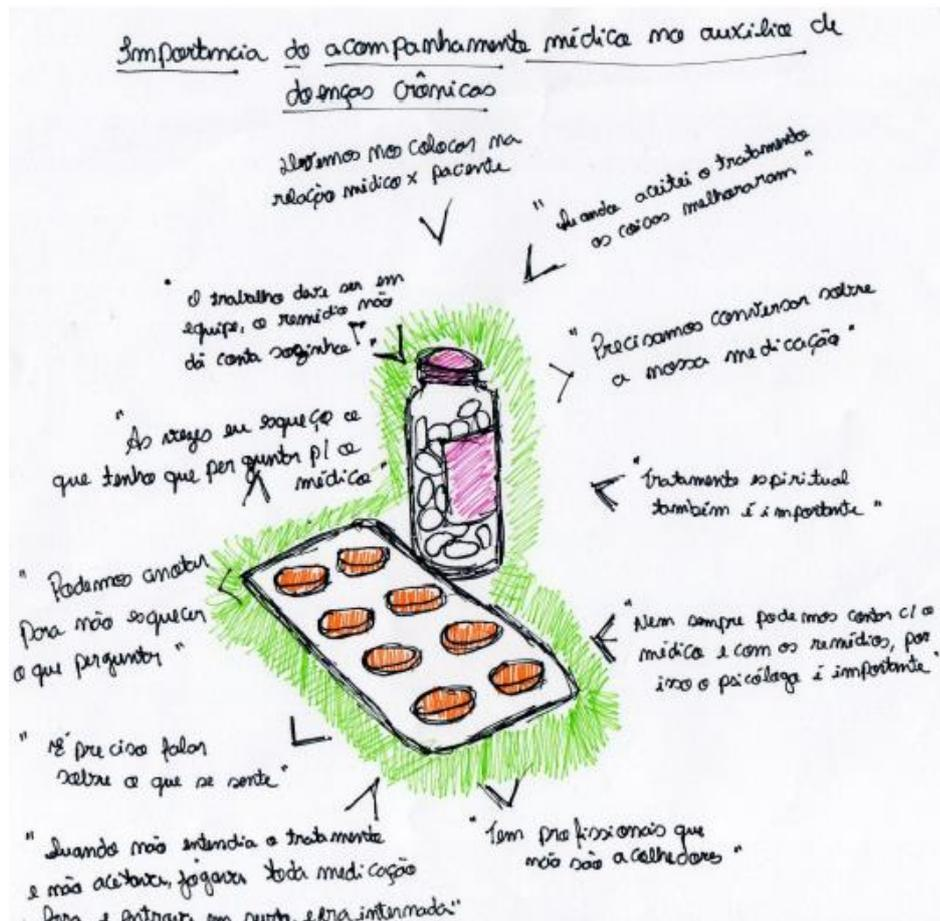 Importancia do acompanhamento médico no auxilio de
doenças crônicas
devemos nos colocar na
relação médico x paciente
"Quando aceitei o tratamento
as coisas melhoraram"
"O trabalho deve ser em
equipe, o remédio não
dá conta sozinho!"
"Precisamos conversar sobre
a nossa medicação"
"As vezes eu esqueço o
que tenho que perguntar p/ o
médico"
"Tratamento espiritual
também é importante"
"Podemos anotar
para não esquecer
o que perguntar"
"Nem sempre podemos contar c/ o
médico e com os remédios, por
isso o psicólogo é importante"
"É preciso falar
sobre o que se sente"
"Tem profissionais que
não são acolhedores"
"Quando não entendia o tratamento
e não aceitava, jogava toda medicação
fora e entrava em surto e era internada"